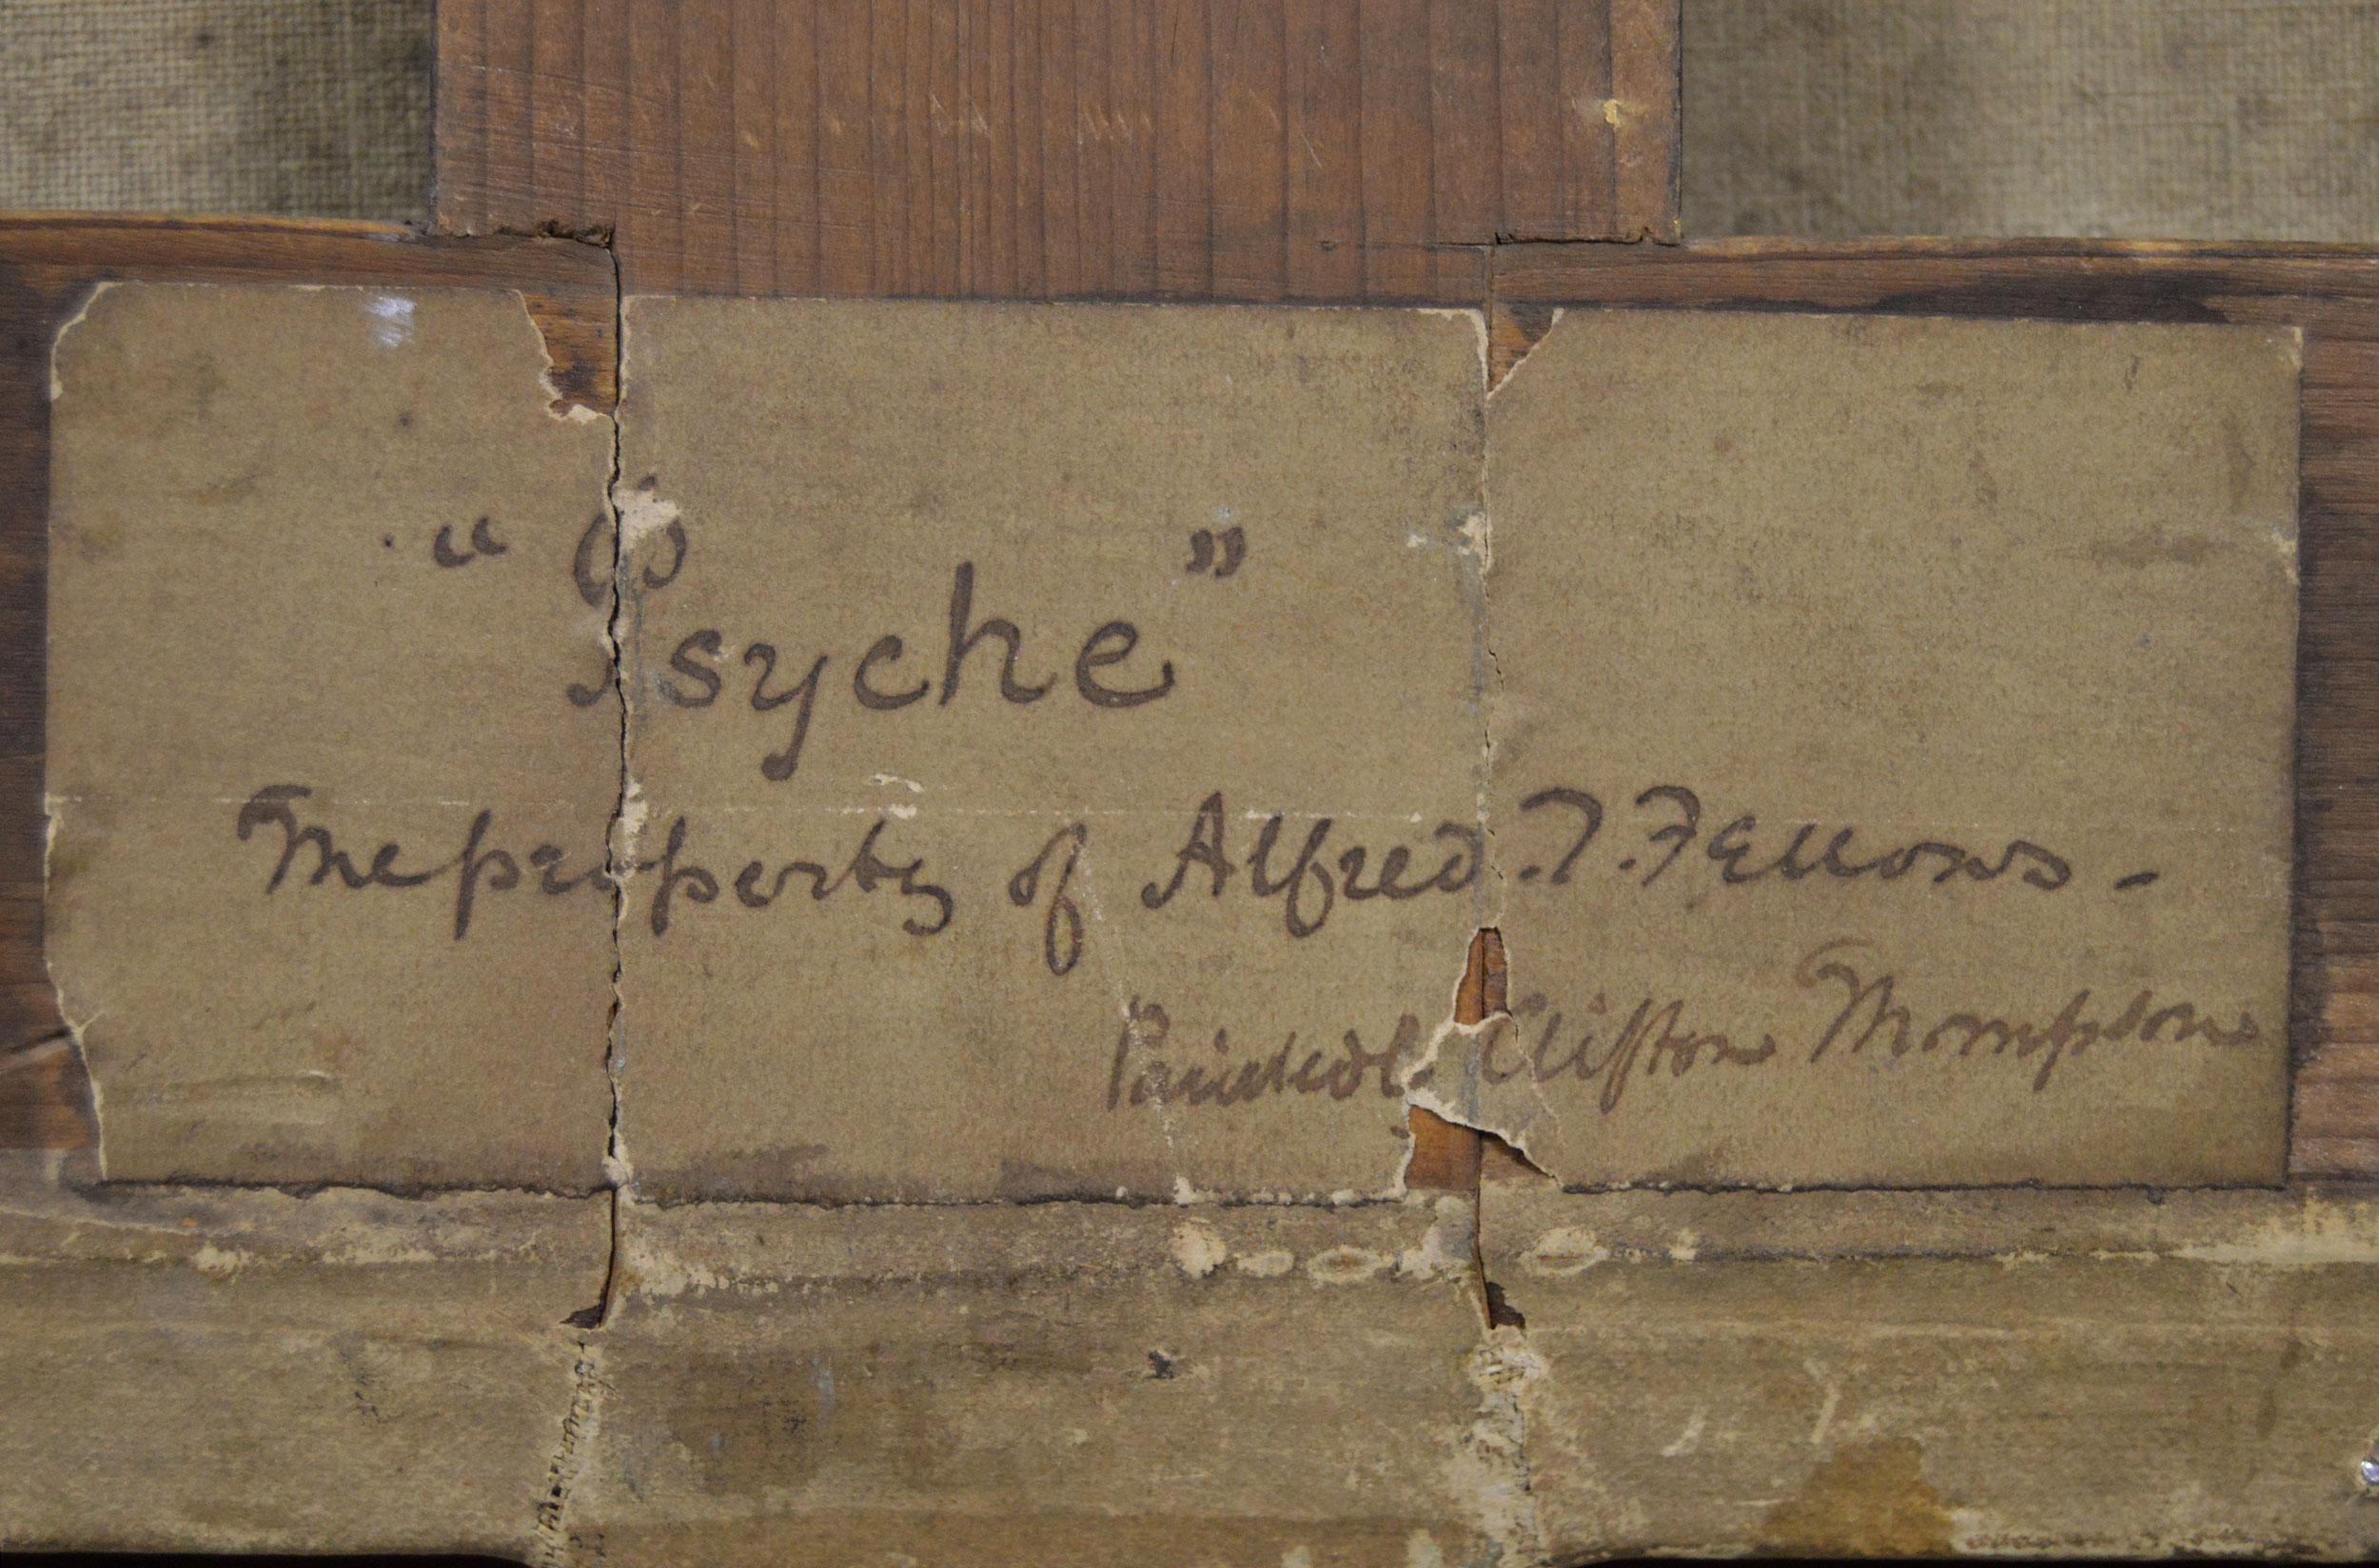 “Psyche”
The property of Alfred. T. Fellows -
Painted Clifton Thompson